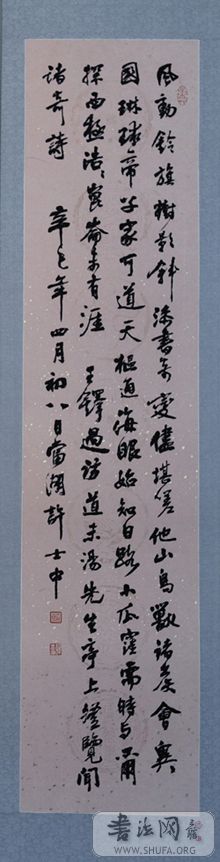 風動鈴旗樹影斜漆書變儘堪嗟他山鳥獸諸侯會異
國琳球帝子家可道天樞通海眼始知日路小瓜窪時与爾
探西極浩〻崑崙未有涯 王鐸過訪道未湯先生亭上登覽聞
諸奇詩 辛巳年四月初八日當湖許士中
書法网
WWW.SHUFA.ORG